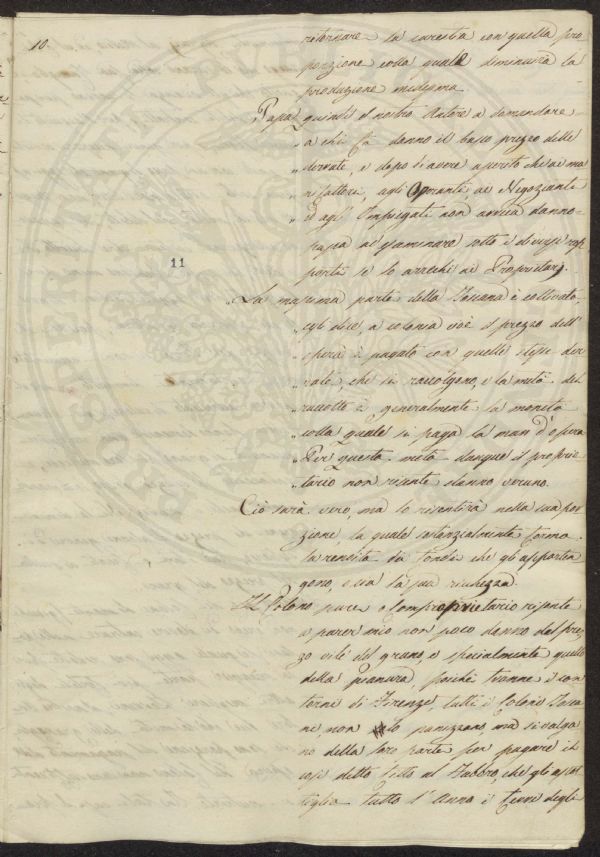 10.
ritornare la carestia con quella pro
porzione colla quale diminuirà la
produzione medesima.
Passa quindi il nostro Autore a domandare
„ a chi fà danno il basso prezzo delle
„ derrate, e dopo d'avere asserito che ai ma
„ nifattori, agli Operanti, ai Negozianti
„ ed agl' Impiegati non arreca danno
„ passa ad esaminare sotto i diversi rap
„ porti se lo arrechi ai Proprietarj.
11
„ La massima parte della Toscana è coltivata,
„ egli dice, a colonia cioè il prezzo dell'
„ opera è pagato con quelle stesse der
„ rate, che si raccolgono, e la metà del
„ raccolto è generalmente la moneta
„ colla quale si paga la man d'opera
„ Per questa metà dunque il proprie
„ tario non risente danno veruno.
Ciò sarà vero, ma lo risentirà nella sua por
zione la quale sostanzialmente forma
la rendita da fondi che gli apparten
gono, e la sua ricchezza.
Il Colono pure comproprietario risente
a parer mio non poco danno del prez
zo vile del grano, e specialmente quello
della pianura, poiché tranne i con
torni di Firenze, tutti i Coloni Tosca
ni, non lo panizzano, ma si valgo
no della loro parte per pagare il
così detto al Fabbro, che gli assot
tiglia tutto l'Anno i ferri degli